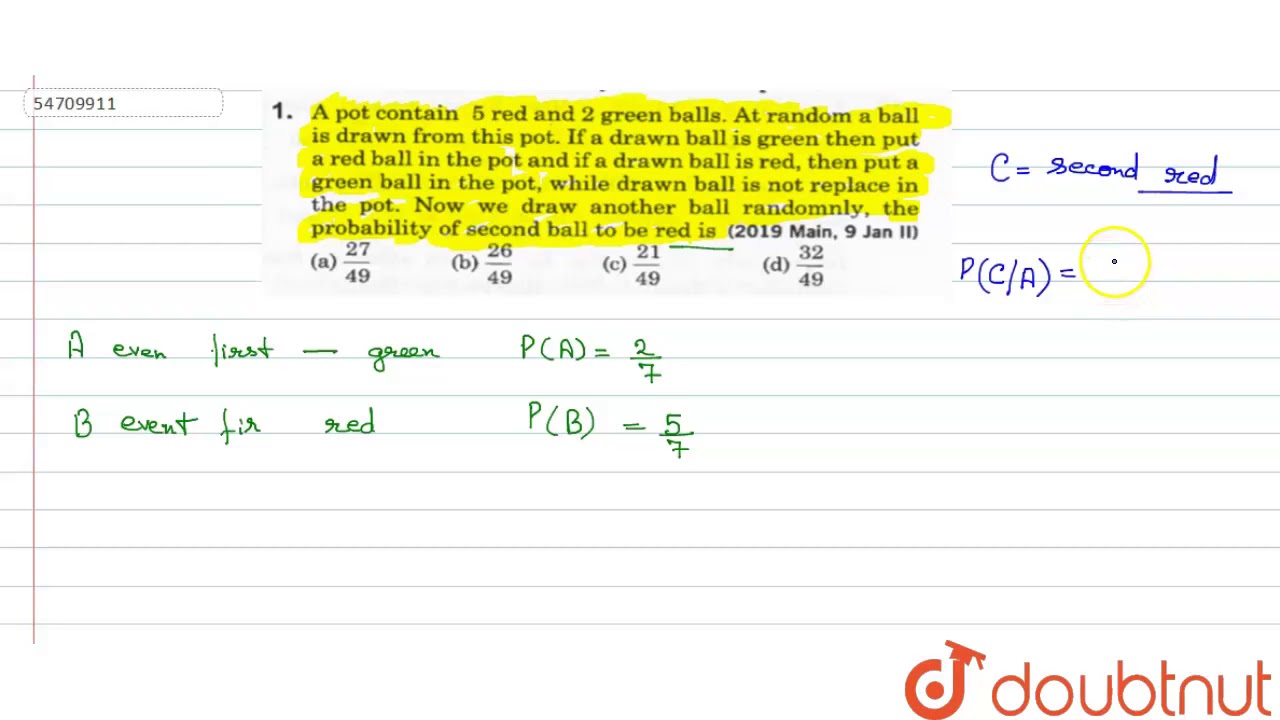 54709911
1. A pot contain 5 red and 2 green balls. At random a ball
is drawn from this pot. If a drawn ball is green then put
a red ball in the pot and if a drawn ball is red, then put a
green ball in the pot, while drawn ball is not replace in
the pot. Now we draw another ball randomnly, the
probability of second ball to be red is (2019 Main, 9 Jan II)
(a) 27/49 (b) 26/49 (c) 21/49 (d) 32/49
C = second red
P(C/A) =
A even first — green P(A) = 2/7
B event fir red P(B) = 5/7
doubtnut